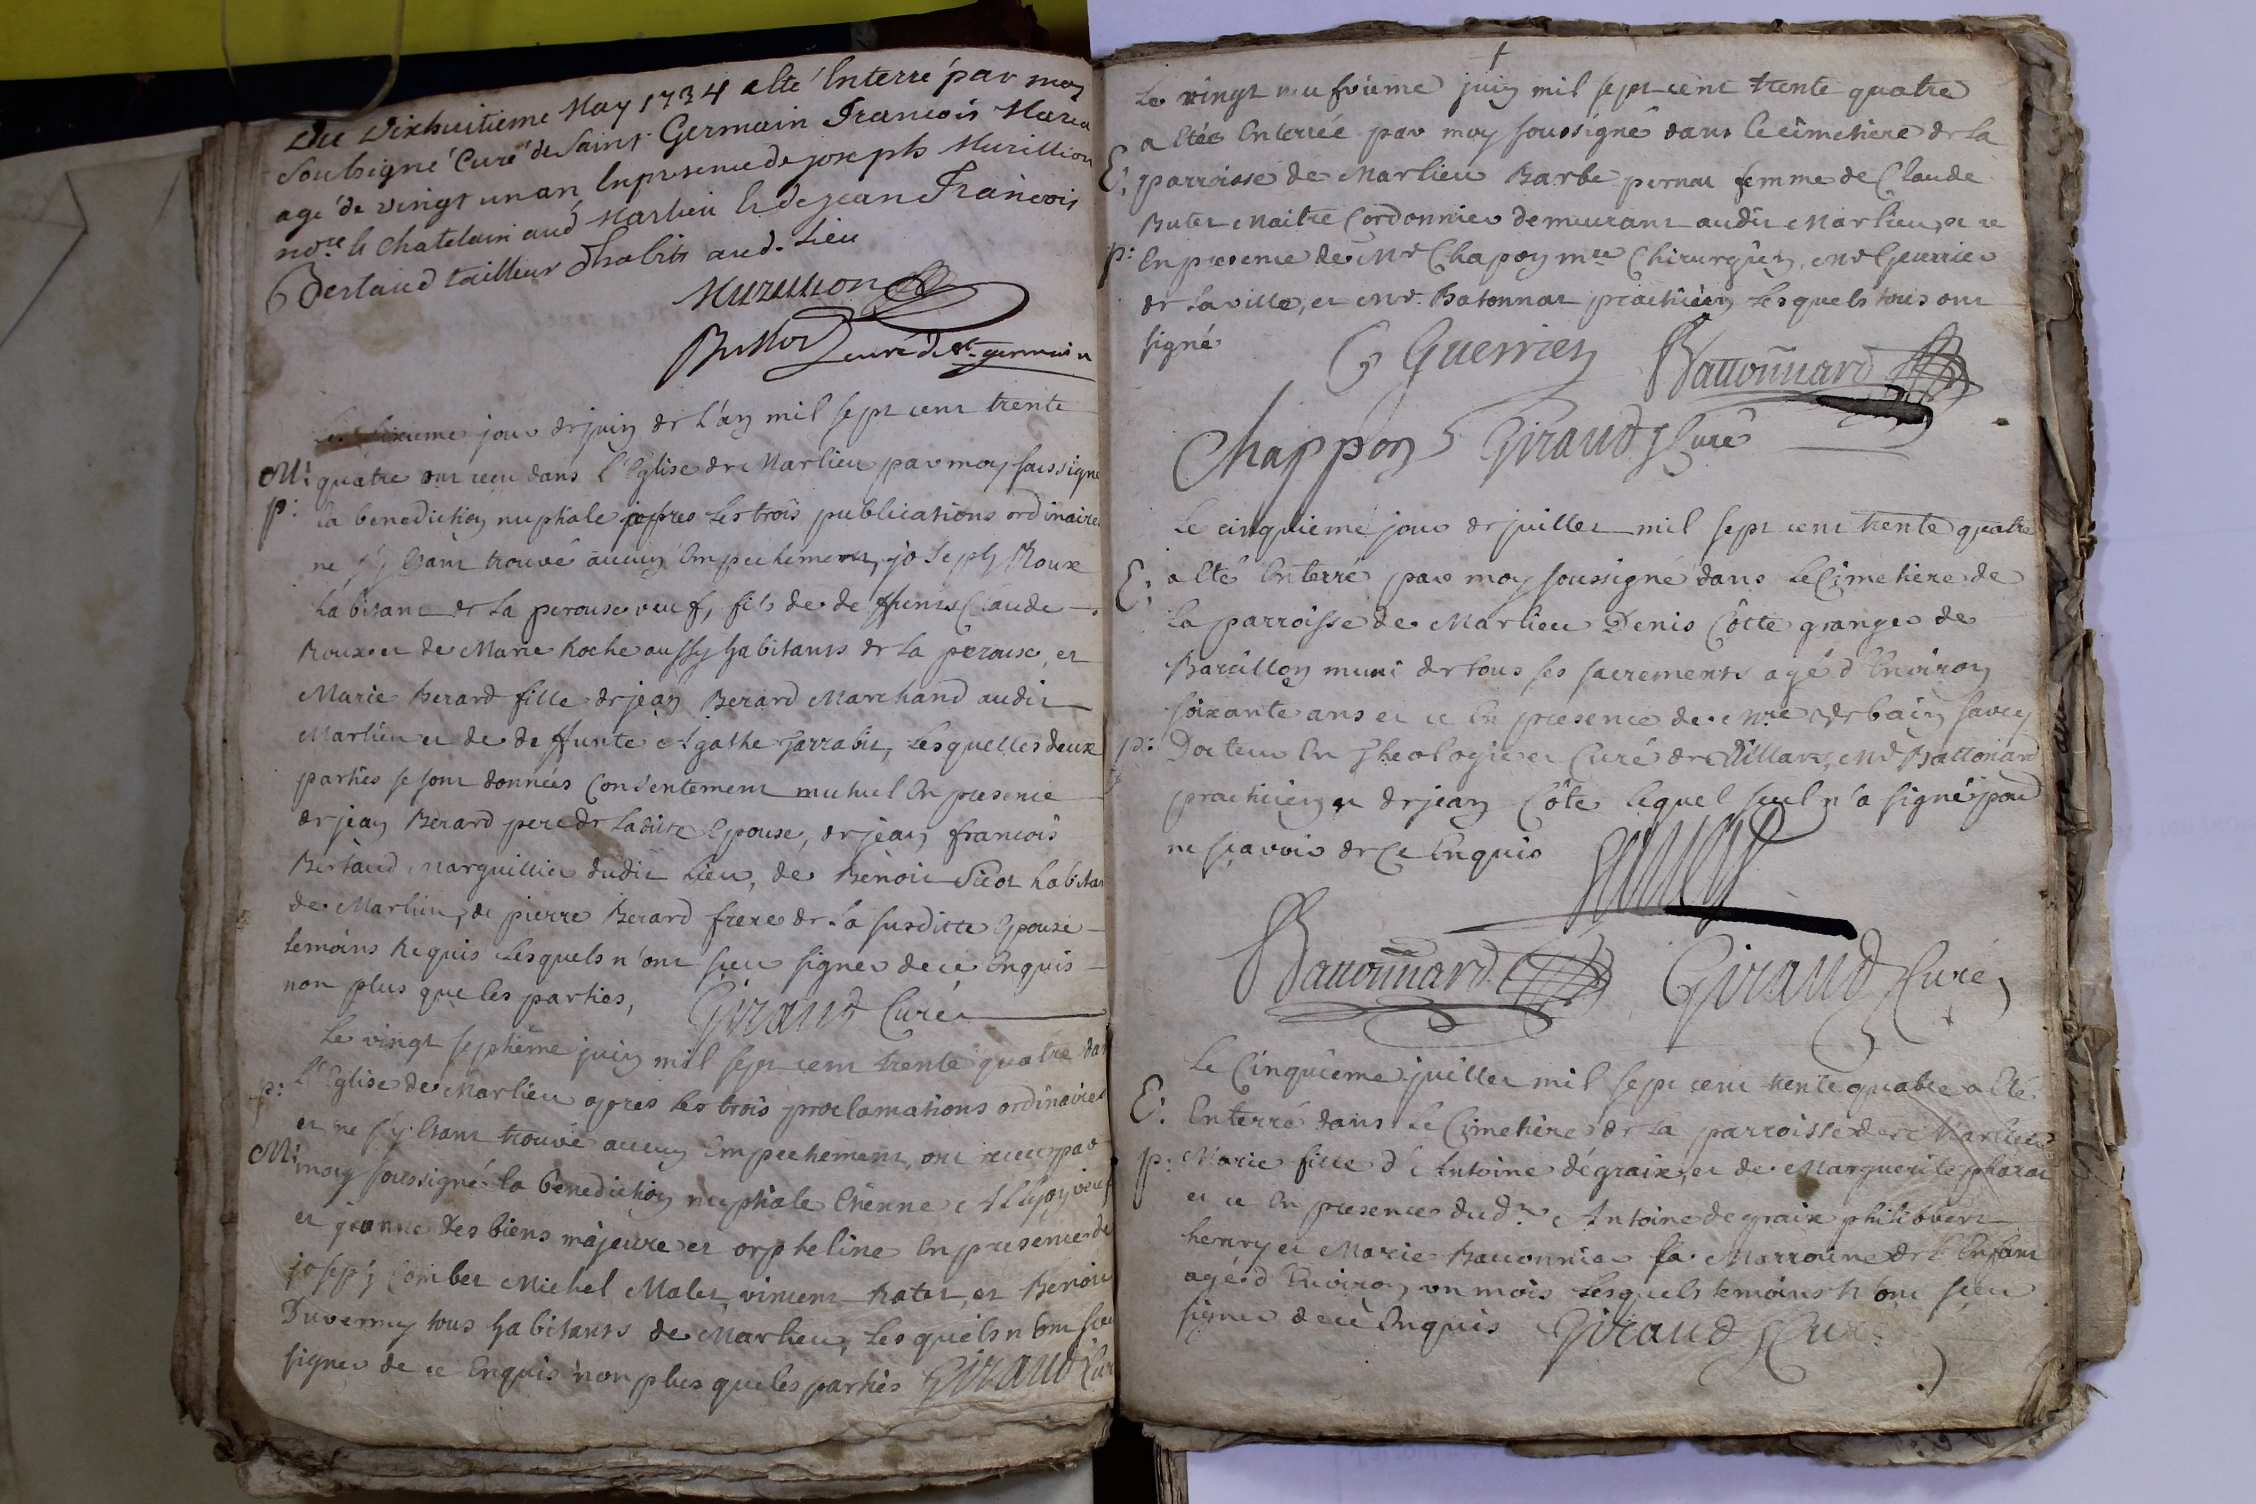 Du Dixhuitieme May 1734 a Eté Enterré par moy
Soubsigné Curé de Saint Germain Francois
agé de vingt un an En presence de joseph Murillion
no.re & Chatelain aud Marlieu & de jean Francois
Bertaud tailleur d'habits aud. Lieu
Murillion
curé de St. germain
jour de juin de L'an mil sept cent trente
M: quatre ont recu dans l'Eglise de Marlieu par moy soussigné
p: la benediction nuptiale apres Les trois publications ordinaires
ne s'y Etant trouvé aucun Empechement, joseph Roux
habitant de La perouse veuf, fils de deffunts Claude
Roux et de Marie Roche aussy habitants de La perouse, et
Marie Berard fille de jean Berard Marchand audit
Marlieu et de deffunte Agathe jarrabit, Lesquelles deux
parties se sont données Consentement mutuel En presence
de jean Berard pere de Laditte Epouse, de jean francois
Bertaud Marguillier dudit Lieu, de Benoit Picot habitant
de Marlieu, de pierre Berard frere de La susditte Epouse
temoins Requis Lesquels n'ont sceu signer de ce Enquis
non plus que les parties, Giraud Curé
Le vingt septieme juin mil sept cent trente quatre dans
p: L'Eglise de Marlieu apres Les trois proclamations ordinaires
et ne s'y Etant trouvé aucun Empechement, ont receu par
M: moy soussigné la benediction nuptiale Etienne veuf
et jeanne Des biens majeure et orpheline En presence de
joseph Combet Michel Malet, vincent Ratet, et Benoit
Duvernay tous habitants de Marlieu, Lesquels n'ont sceu
signer de ce Enquis non plus que les parties Giraud Curé
Le vingt neufvieme juin mil sept cent trente quatre
a Etée Enterrée par moy soussigné dans le cimetiere de La
E: parroisse de Marlieu Barbe pernat femme de Claude
Butet Maitre Cordonnier demeurant audit Marlieu, et ce
p: En presence de Mr Chapon me Chirurgien, Mr Guerrier
de Laville, et Mr. Batonnar practicien Lesquels tous ont
signé
Guerrier Battonnard
Chappon Giraud Curé
Le cinquieme jour de juillet mil sept cent trente quatre
E: a Eté Enterré par moy soussigné dans Le Cimetiere de
La parroisse de Marlieu Denis Côtte granger de
Barillon muni de tous ses sacrements agé d'Environ
soixante ans et ce En presence de Mre Urbain savey
p: Docteur En Theologie et Curé de Villars, Mr Battonard
practicien et de jean Côte lequel seul n'a signé pour
ne sçavoir de Ce Enquis
Battonnard Giraud Curé
Le Cinquieme juillet mil sept cent trente quatre a Eté
E: Enterré dans Le Cimetiere de La parroisse de Marlieu
p: Marie fille d'Antoine dégraix, et de Marguerite
et ce En presence dud.t Antoine degraix philibbert
henry et Marie Battonnier sa Marroine de l'Enfant
agé d'Environ un mois Lesquels temoins n'ont sceu
signer de ce Enquis Giraud Curé